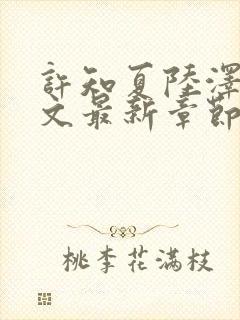 許知夏陸澤
文最新章節
桃李花满枝